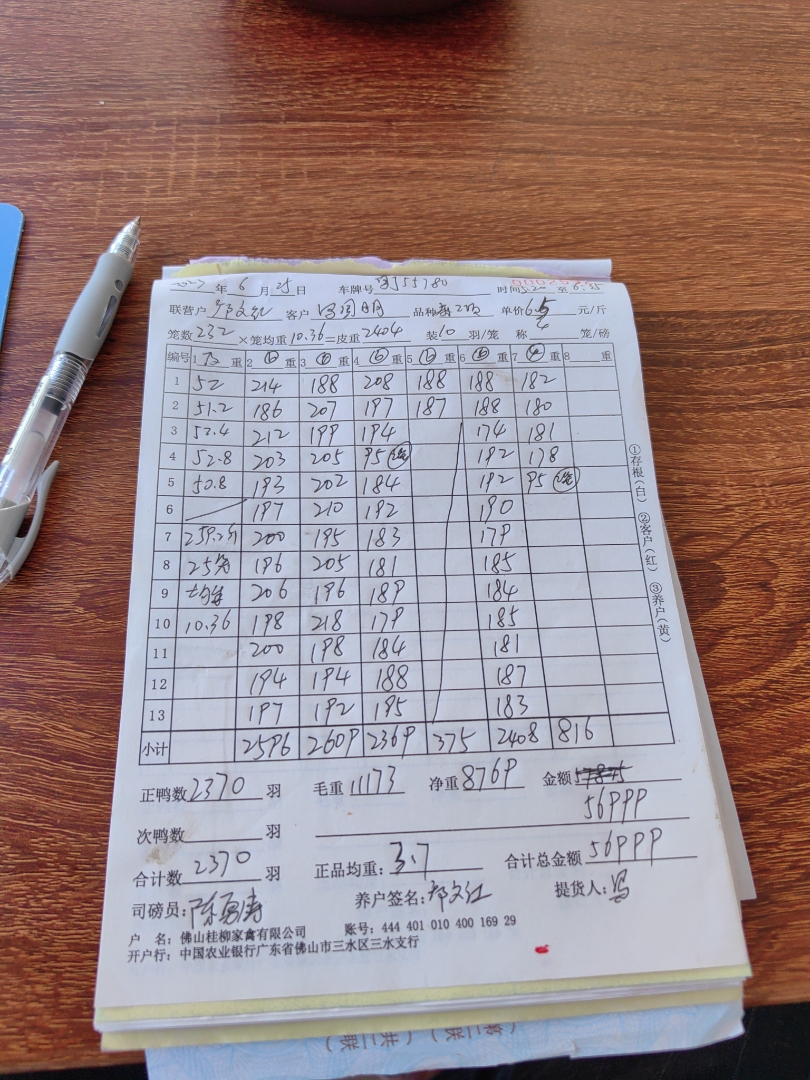 年 6 月 25 日 车牌号 55780 时间 至 6:35
联营户 邓文红 客户 冯国明 品种 单价 6.5 元/斤
笼数 232 ×笼均重 10.36 =皮重 2404 装 10 羽/笼 称 笼/磅
编号 1 重 2 重 3 重 4 重 5 重 6 重 7 重 8 重
1 52 214 188 208 188 188 182
2 51.2 186 207 197 187 188 180
3 52.4 212 199 194 174 181
4 52.8 203 205 95 192 178
5 50.8 193 202 184 192 95
6 197 210 192 190
7 259.2斤 200 195 183 179
8 25笼 196 205 181 185
9 206 196 189 184
10 10.36 198 218 179 185
11 200 198 184 181
12 194 194 188 187
13 197 192 195 183
小计 2596 2609 2369 375 2408 816
正鸭数 2370 羽 毛重 11173 净重 8769 金额
56999
次鸭数 羽
合计数 2370 羽 正品均重: 3.7 合计总金额 56999
司磅员: 陈勇涛 养户签名: 邓文红 提货人: 冯
户 名: 佛山桂柳家禽有限公司 账号: 444 401 010 400 169 29
开户行: 中国农业银行广东省佛山市三水区三水支行
①存根(白) ②客户(红) ③养户(黄)
(第二联) (共二联)